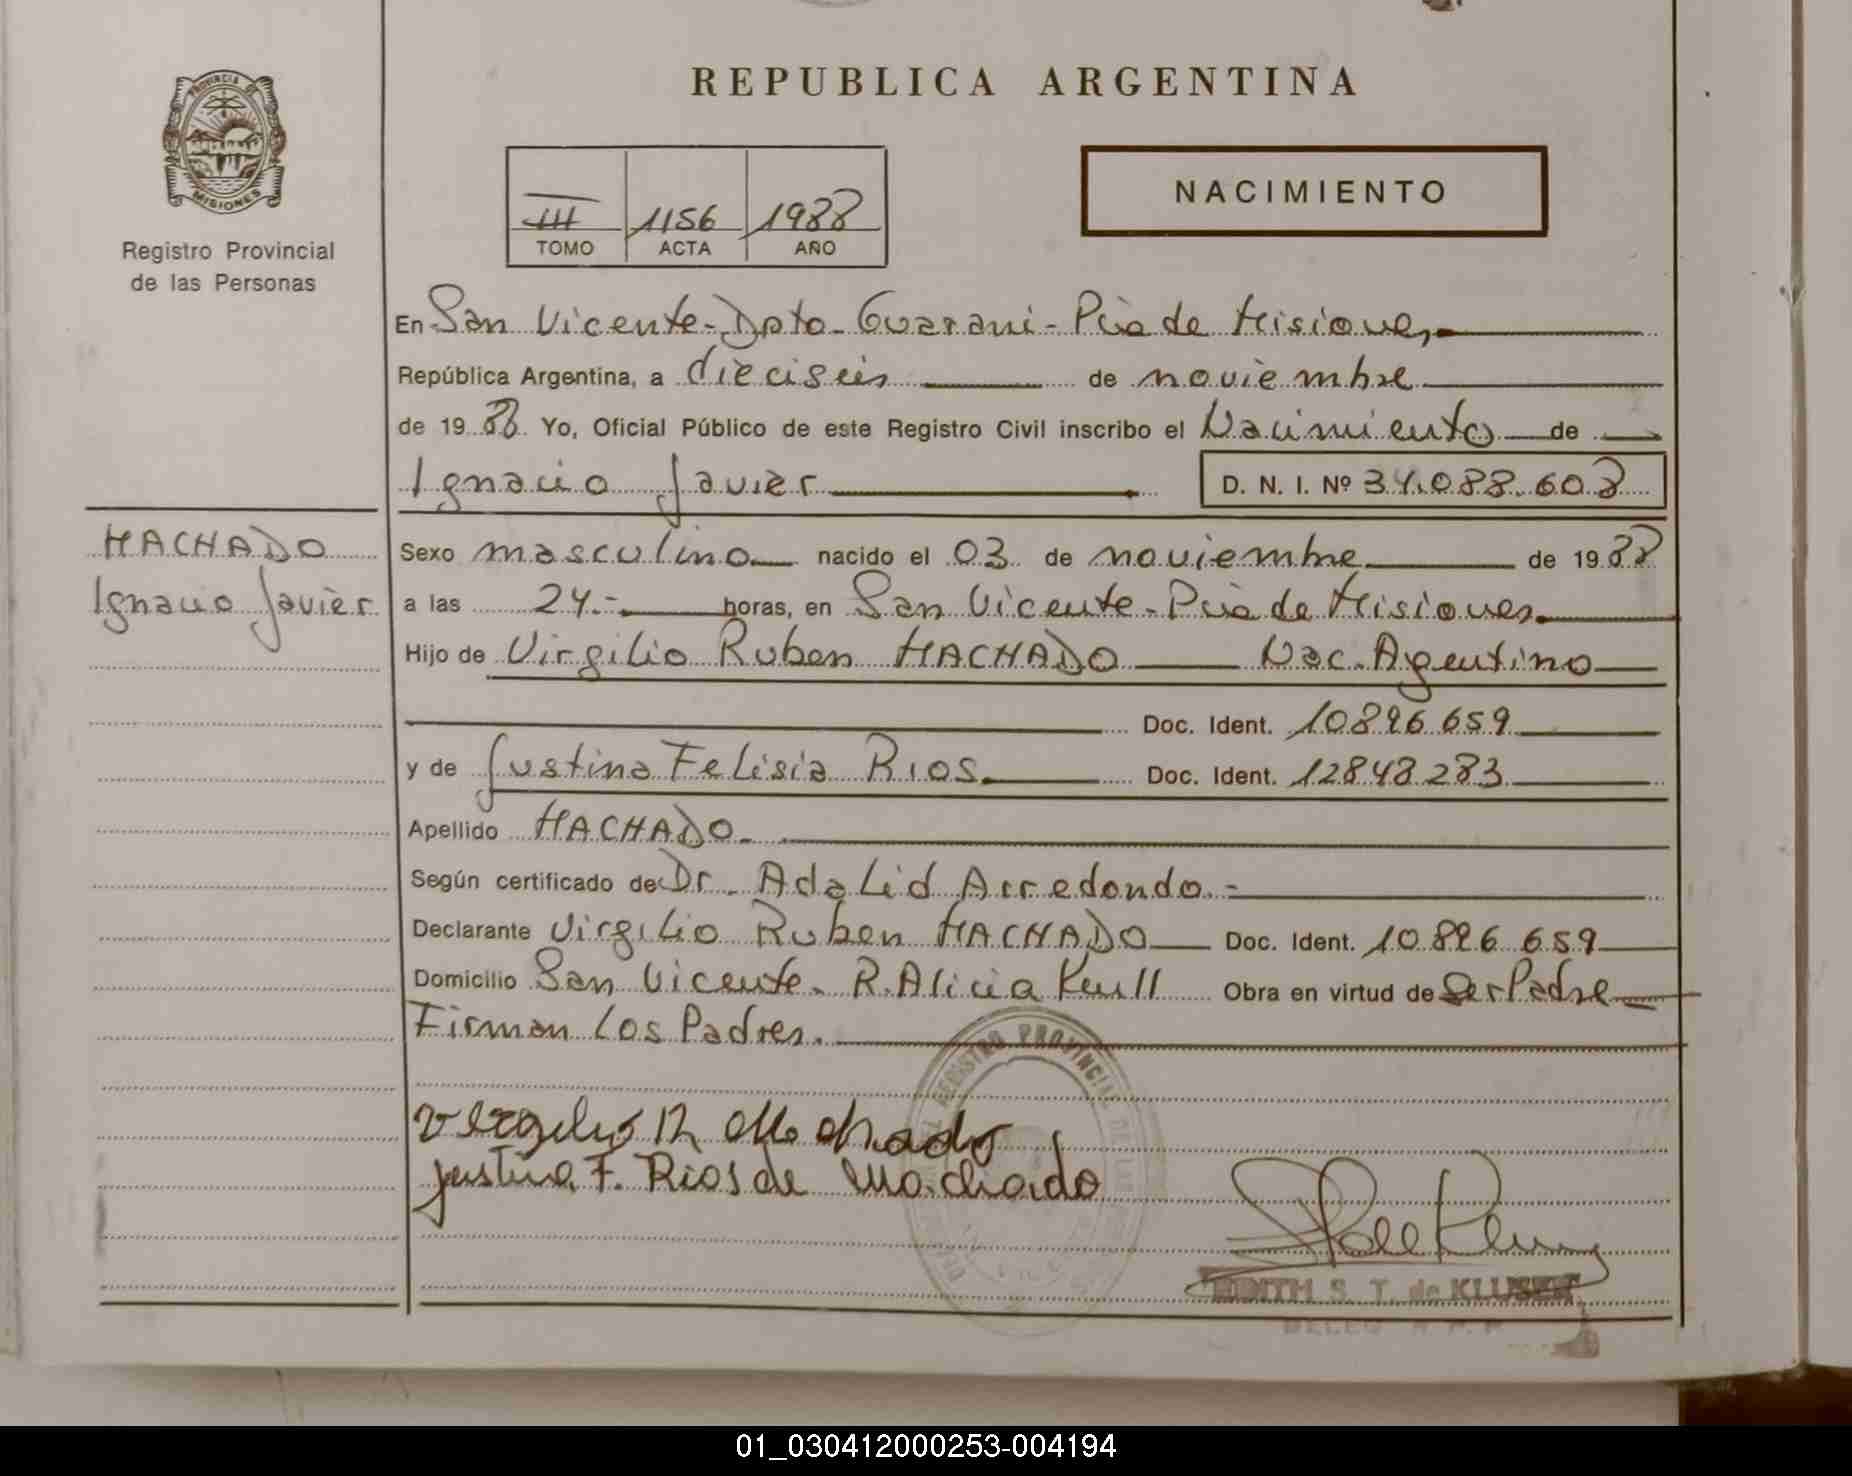 REPUBLICA ARGENTINA
PROVINCIA DE
MISIONES
Registro Provincial
de las Personas
III 1156 1988
TOMO ACTA AÑO
NACIMIENTO
En San Vicente - Dpto - Guarani - Pcia de Misiones
República Argentina, a dieciseis de noviembre
de 1988 Yo, Oficial Público de este Registro Civil inscribo el Nacimiento de
Ignacio Javier D. N. I. Nº 34.088.608
HACHADO
Ignacio Javier
Sexo masculino nacido el 03 de noviembre de 1988
a las 24.- horas, en San Vicente - Pcia de Misiones
Hijo de Virgilio Ruben HACHADO Nac. Agentino
Doc. Ident. 10896659
y de Justina Felisia RIOS Doc. Ident. 12848283
Apellido HACHADO.
Según certificado de Dr. Adalid Arredondo.-
Declarante Virgilio Ruben HACHADO Doc. Ident. 10.896.659
Domicilio San Vicente. R. Alicia Obra en virtud de Ser Padre
Firman Los Padres.
REGISTRO PROVINCIAL DE LAS
R Machado
Justina F. Rios de Machado
EDITH S. T. de KLUSER
01_030412000253-004194